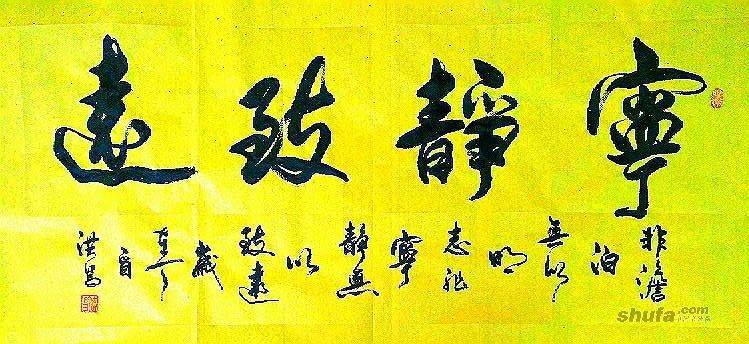 寧靜致遠
非澹泊無以明志非寧靜無以致遠
歲
洪昌
shufa.com